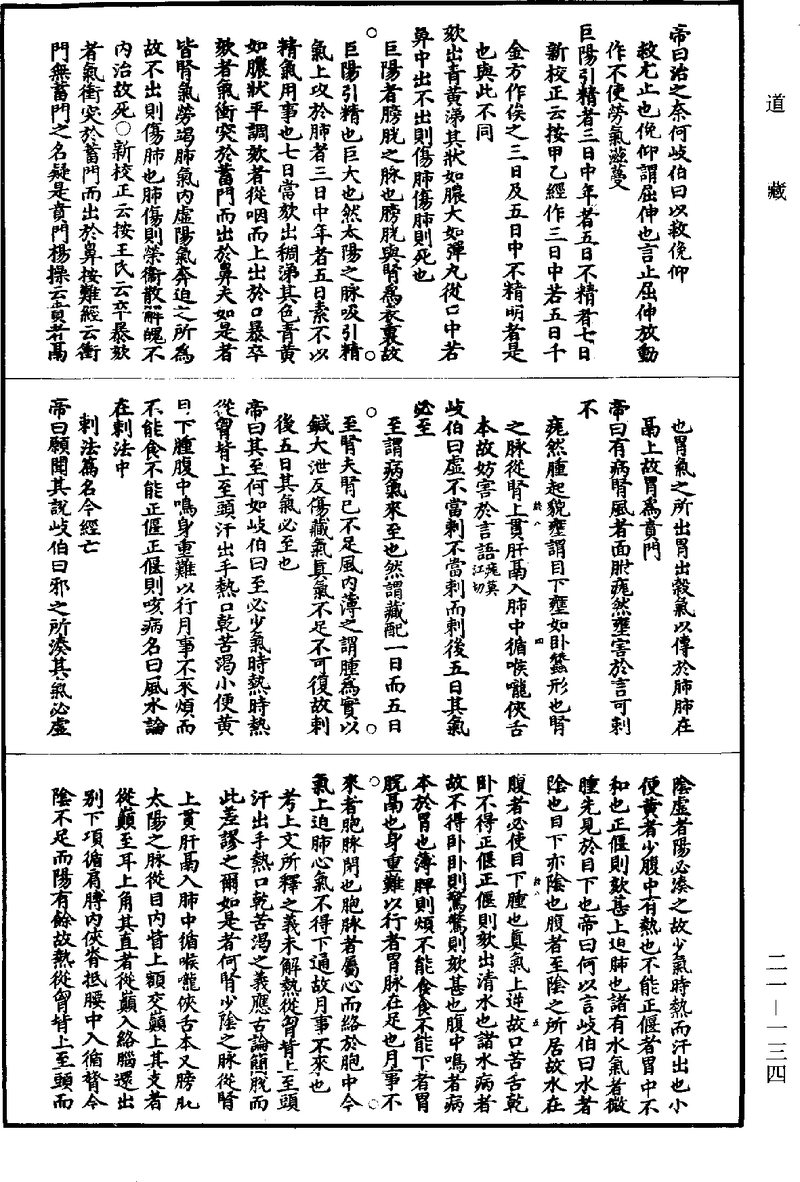 道藏
帝曰治之奈何歧伯曰以救俛仰
救尤止也俛仰謂屈伸也言止屈伸放動
作不使勞氣滋蔓
巨陽引精者三日中年者五日不精者七日
新校正云按甲乙經作三日中若五日千
金方作俟之三日及五日中不精明者是
也與此不同
欬出青黃涕其狀如膿大如彈丸從口中若
鼻中出不出則傷肺傷肺則死也
巨陽者膀胱之脉也膀胱與腎爲表裏故
巨陽引精也巨大也然太陽之脉吸引精
氣上攻於肺者三日中年者五日素不以
精氣用事也七日當欬出稠涕其色青黃
如膿狀平調欬者從咽而上出於口暴卒
欬者氣衝突於蓄門而出於鼻夫如是者
皆腎氣勞竭肺氣內虛陽氣奔迫之所爲
故不出則傷肺也肺傷則榮衛散解魄不
內治故死○新校正云按王氏云卒暴欬
者氣衝突於蓄門而出於鼻按難經云衝
門無蓄門之名疑是賁門楊操云賁者鬲
也胃氣之所出胃出穀氣以傳於肺肺在
鬲上故胃爲賁門
帝曰有病腎風者面胕痝然壅害於言可刺
不
痝然腫起貌壅謂目下壅如卧蠶形也腎
之脉從腎上貫肝鬲入肺中循喉嚨俠舌
本故妨害於言語痝莫江切
歧伯曰虛不當刺不當刺而刺後五日其氣
必至
至謂病氣來至也然謂藏配一日而五日
至腎夫腎已不足風內薄之謂腫爲實以
鍼大泄反傷藏氣真氣不足不可復故刺
後五日其氣必至也
帝曰其至何如歧伯曰至必少氣時熱時熱
從胷背上至頭汗出手熱口乾苦渴小便黃
目下腫腹中鳴身重難以行月事不來煩而
不能食不能正偃正偃則咳病名曰風水論
在刺法中
刺法篇名今經亡
帝曰願聞其說歧伯曰邪之所湊其氣必虛
陰虛者陽必湊之故少氣時熱而汗出也小
便黃者少腹中有熱也不能正偃者胃中不
和也正偃則欬甚上迫肺也諸有水氣者微
腫先見於目下也帝曰何以言歧伯曰水者
陰也目下亦陰也腹者至陰之所居故水在
腹者必使目下腫也真氣上逆故口苦舌乾
卧不得正偃正偃則欬出清水也諸水病者
故不得卧卧則驚驚則欬甚也腹中鳴者病
本於胃也薄脾則煩不能食食不能下者胃
脘鬲也身重難以行者胃脉在足也月事不
來者胞脉閉也胞脉者屬心而絡於胞中今
氣上迫肺心氣不得下通故月事不來也
考上文所釋之義未解熱從胷背上至頭
汗出手熱口乾苦渴之義應古論簡脫而
此差謬之爾如是者何腎少陰之脉從腎
上貫肝鬲入肺中循喉嚨俠舌本又膀胱
太陽之脉從目內眥上額交巔上其支者
從巔至耳上角其直者從巔入絡腦還出
別下項循肩膊內俠脊抵腰中入循膂今
陰不足而陽有餘故熱從胷背上至頭而
二一—一三四